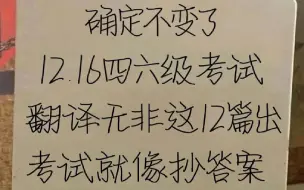 确定不变了
12.16四六级考试
翻译无非这12篇出
考试就像抄答案